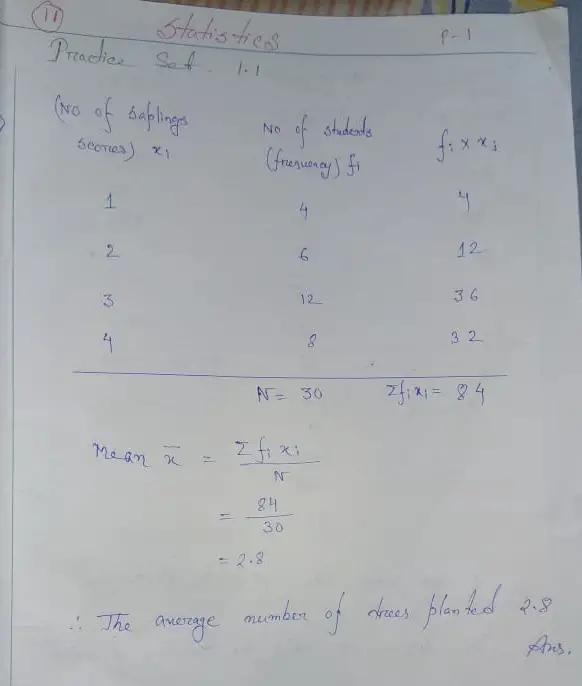 11
Statistics
P-1
Practice Set. 1.1
(No of saplings scores) xi
No of students (frequency) fi
fi × xi
1 4 4
2 6 12
3 12 36
4 8 32
N = 30 Σfixi = 84
Mean x̄ = Σ fi xi / N
= 84 / 30
= 2.8
∴ The average number of trees planted 2.8
Ans.